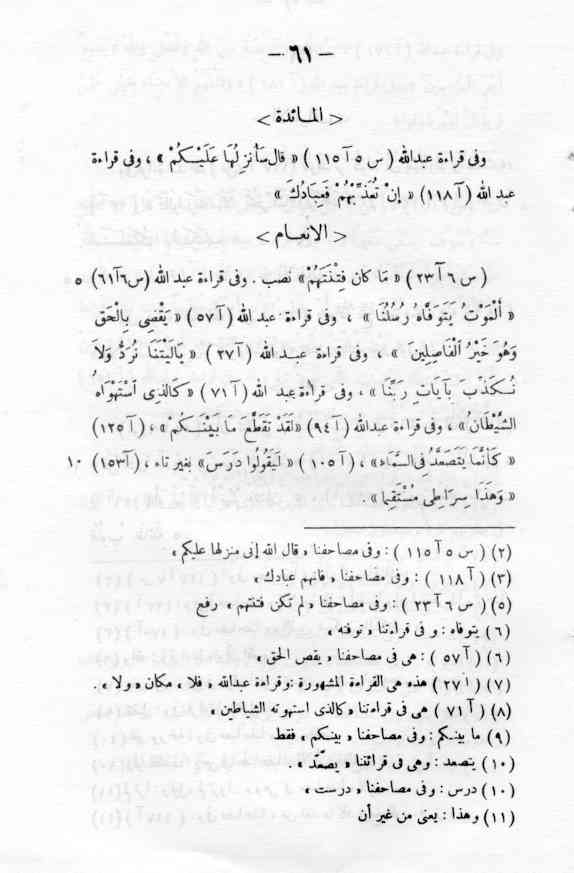 — ٦١ —
< المائدة >
وفى قراءة عبدالله ( س ٥ آ ١١٥ ) « قال سَأُنزِلُهَا عَلَيْكُمْ » ، وفى قراءة
عبد الله (آ ١١٨) « إِنْ تُعَذِّبْهُمْ فَعِبَادُكَ »
< الانعام >
( س ٦ آ ٢٣ ) « مَا كان فِتْنَتَهُمْ» نصب . وفى قراءة عبد الله (س٦آ٦١) ٥
« أَلْمَوْتُ يَتَوَفَّاهُ رُسُلُنَا » ، وفى قراءة عبد الله (آ ٥٧) « يَقْضِى بِالْحَقِّ
وَهُوَ خَيْرُ اْلفَاصِلِينَ » ، وفى قراءة عبد الله (آ ٢٧) « يَالَيْتَنَا نُرَدُّ وَلاَ
نُكَذِّبَ بِآيَاتِ رَبِّنَا » ، وفى قراءة عبد الله (آ ٧١) « كَالذى اسْتَهْوَاهُ
الشَّيْطَانُ » ، وفى قراءة عبدالله (آ ٩٤) «لَقَدْ تَقَطَّعَ مَا بَيْنَكُمْ» ، (آ ١٢٥)
« كَأَنَّمَا يَتَصَعَّدُ فى السَّمَاء» ، (آ ١٠٥) « لِيَقُولُوا دَرَسَ» بغير تاء ، (آ ١٥٣) ١٠
« وَهَذَا سِرَاطِى مُسْتَقِيماً» .
(٢) ( س ٥ آ ١١٥ ) : وفى مصاحفنا « قال الله إنى منزلها عليكم »
(٣) ( آ ١١٨ ) : وفى مصاحفنا « فانهم عبادك »
(٥) ( س ٦ آ ٢٣ ) : وفى مصاحفنا « لم تكن فتنتهم » رفع
(٦) يتوفاه : و فى قراءتنا « توفته »
(٦) ( آ ٥٧ ) : هى فى مصاحفنا « يقص الحق »
(٧) ( آ ٢٧ ) هذه هى القراءة المشهورة :وقراءة عبدالله « فلا » مكان « ولا » .
(٨) ( آ ٧١ ) هى فى قراءتنا « كالذى استهوته الشياطين »
(٩) ما بينكم : وفى مصاحفنا « بينكم » فقط
(١٠) يتصعد : وهى فى قرائتنا « يصّعّد » .
(١٠) درس : وفى مصاحفنا « درست »
(١١) وهذا : يعنى من غير أن